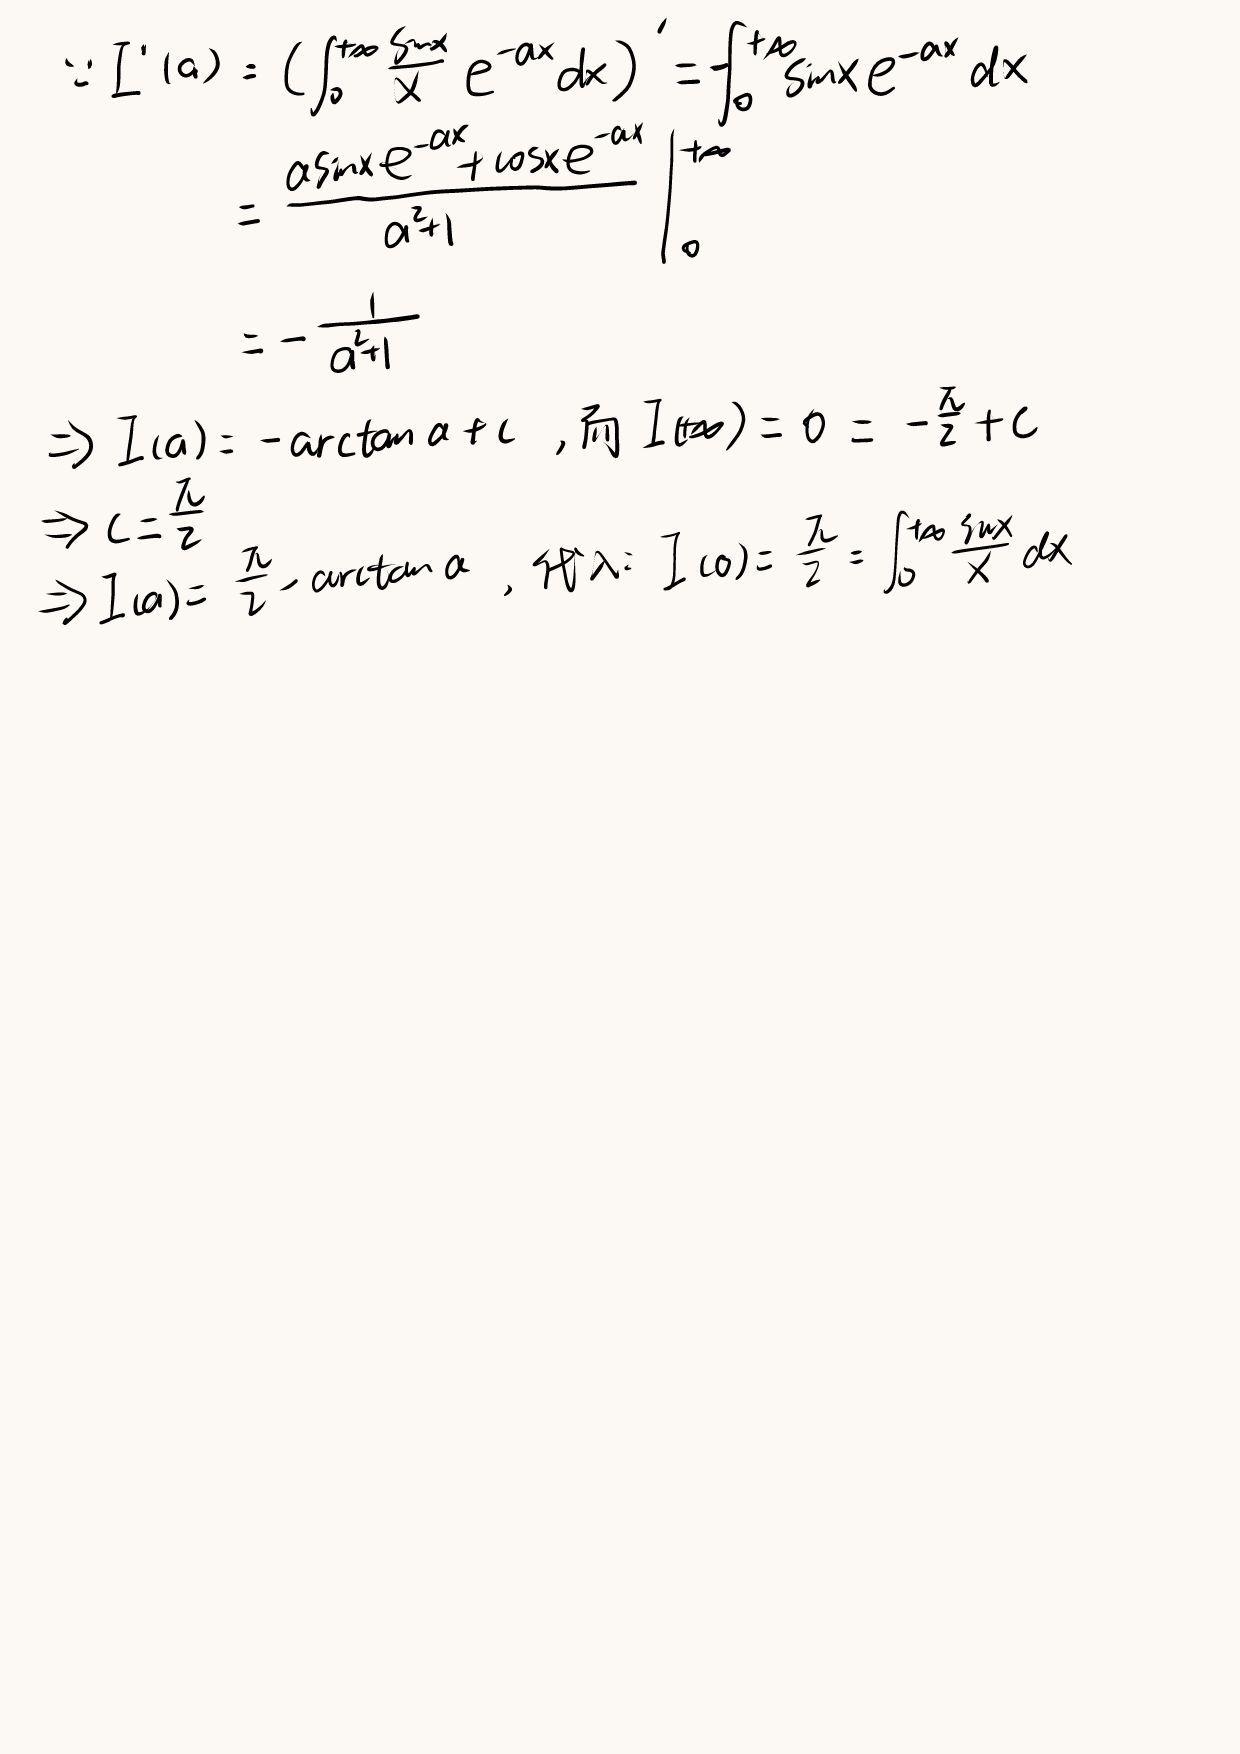 ∵ I'(a) = (∫₀^{+∞} \frac{sinx}{x} e^{-ax} dx)' = -∫₀^{+∞} sinx e^{-ax} dx
= \frac{a sinx e^{-ax} + cosx e^{-ax}}{a²+1} |₀^{+∞}
= - \frac{1}{a²+1}
⇒ I(a) = -arctan a + C , 而 I(+∞) = 0 = -\frac{π}{2} + C
⇒ C = \frac{π}{2}
⇒ I(a) = \frac{π}{2} - arctan a , 代入: I(0) = \frac{π}{2} = ∫₀^{+∞} \frac{sinx}{x} dx